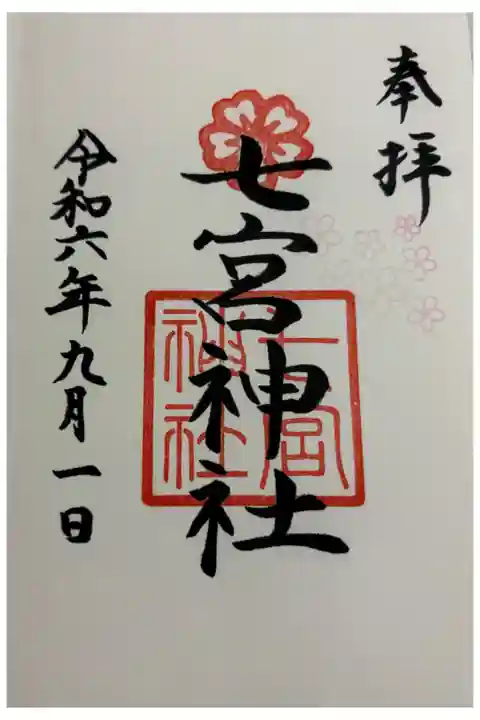 奉拝
七宮神社
七宮
神社
令和六年九月一日